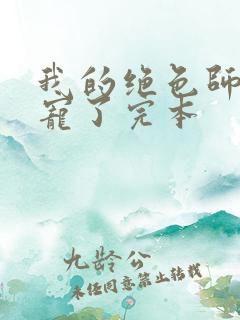 我的绝色师
宠了完本
九龄公
未经同意禁止转载